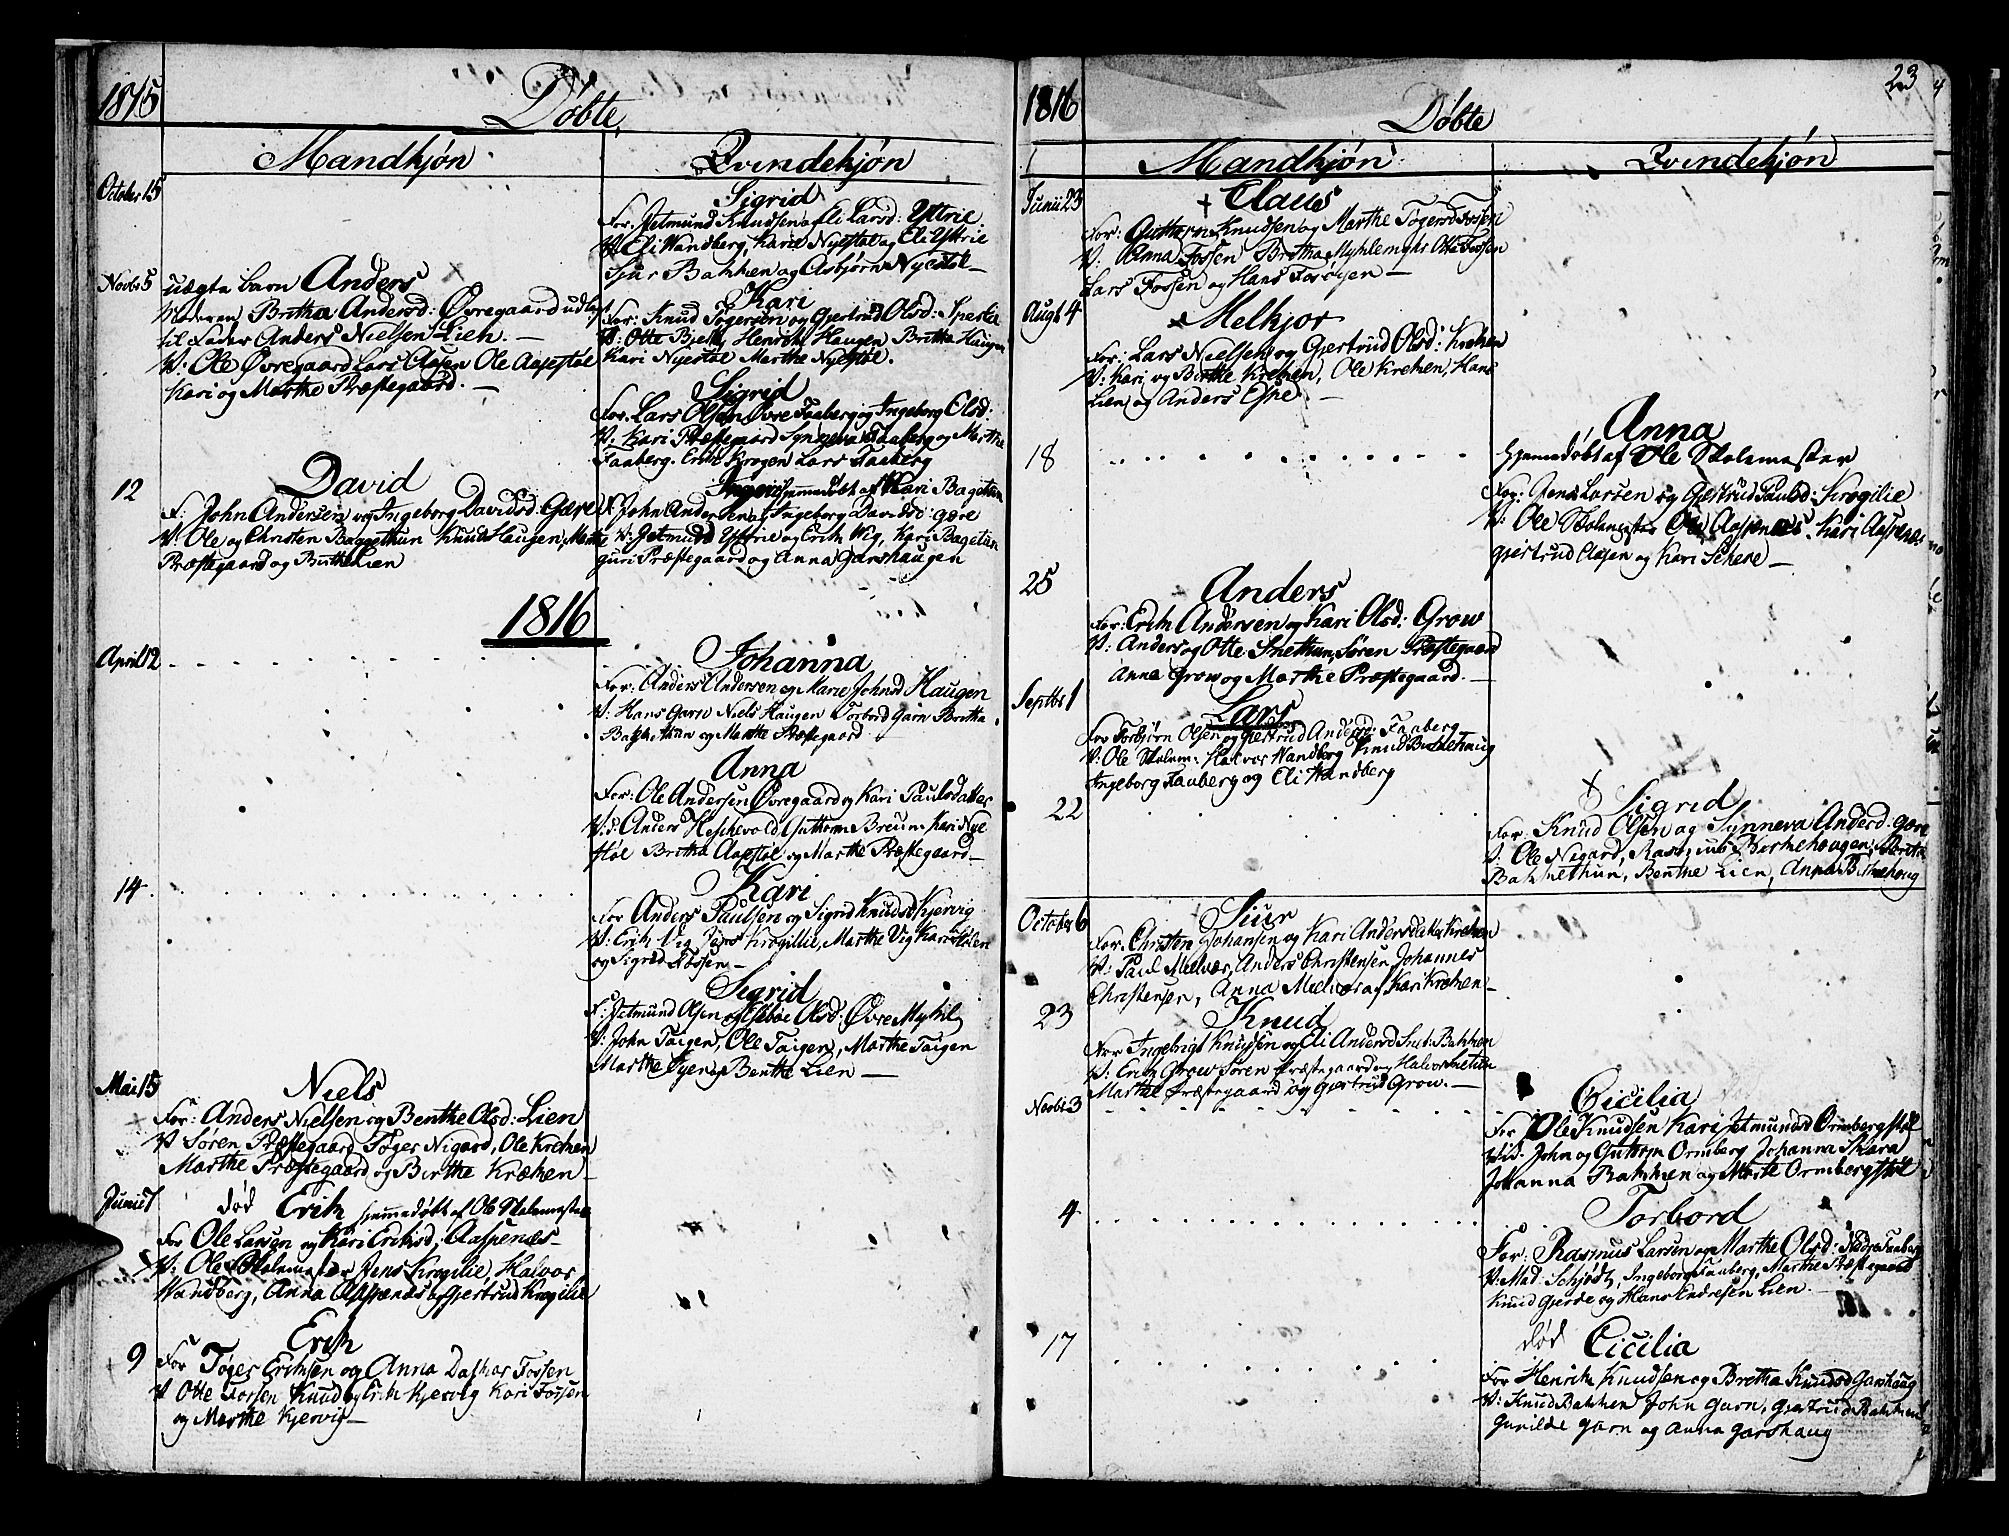 1815
Døbte
Mandkjøn
Qvindekjøn
October 15
Sigrid
For: Jetmund Knudsen og Eli Larsd: Yttrie
V: Eli Vandberg, Karie Nyestøl og Eli Yttrie
Siur Bakken og Asbjørn Nyestøl
Novbr 5
uægte barn Anders
Moderen Britha Andersd: Øvregaard udlagt
til Fader Anders Nielsen Lien.
V: Ole Øvregaard Lars Claisen Ole Aapestøl
Kari og Marthe Præstegaard.
Kari
For: Knud Tøgersen og Gjertrud Olsd: Sperle
V: Otte Bielle, Henrik Haugen Britha Haugen
Kari Nyestøl Marthe Nyestøl.
Sigrid
For: Lars Olsen Øvre Faaberg og Ingeborg Elsd:
V: Kari Præstegaard Synneva Faaberg og Marthe
Faaberg. Erik Krogen Lars Faaberg
12
David
F: John Andersen og Ingeborg Davidsd: Gære
V: Ole og Christen Baggethun Knud Haugen, Marthe
Præstegaard og Birthe Lien
Ingeri hjemmedøbt af Kari Bagethun
F. John Andersen og Ingeborg Davidsd: Gære
V: Jetmund Yttrie og Erik Vig, Kari Bagetun
Guri Præstegaard og Anna Garshaugen
1816
April 12
Johanna
For: Anders Andersen og Marie Johnsd Haugen
V: Hans Garn Niels Haugen Torbord Garn Britha
Bakkethun og Marthe Præstegaard
Anna
For: Ole Andersen Øvregaard og Kari Paulsdatter
V: Anders Heschevold Guttorm Breum Kari Nye
støl Britha Aapstøl og Marthe Præstegaard
14
Kari
For Anders Paulsen og Sigrid Knudsd Kjervig
V: Erik Vig Jens Krogillie, Marthe Vig Kari Stølen
og Sigrid Fossen
Sigrid
F: Jetmund Olsen og Olsd: Øvre Myhil
V: John Taigen, Ole Taigen, Marthe Taigen
Marthe og Benthe Lien
Mai 15
Niels
For: Anders Nielsen og Benthe Olsd: Lien
V Søren Præstegaard Tøger Nigard, Ole Krehen
Marthe Præstegaard og Birthe Kræken
Junii 7
død Erik hjemmedøbt af Ole Skolemester
For Ole Larsen og Kari Eriksd: Aaspenæs
V: Ole Skolemester Jens Krogilie, Halvor
Vandberg, Anna Aaspenæs og Gjertrud Krogilie
9
Erik
For Tøger Eriksen og Anna Fossen
V Otte Fossen Knud og Erik Kjervig Kari Fossen
og Marthe Kjervig
1816
23
Døbte
Mandkjøn
Qvindekjøn
Junii 23
Claus
For: Guttorm Knudsen og Marthe Tøgersd Fossen
V: Anna Fossen Britha Otte Fossen
Lars Fossen og Hans
Augt 4
Melkjor
For: Lars Nielsen og Gjertrud Olsd: Krehen
V: Kari og Birthe Krehen, Ole Krehen, Hans
Lien og Anders Espe
18
Anna
hjemmedøbt af Ole Skolemester
For: Jens Larsen og Gjertrud Paulsd: Krogilie
V: Ole Skolemester Ole Aaspenæs. Kari Aaspenæs
Gjertrud Claisen og Kari
25
Anders
For: Erik Andersen og Kari Olsd: Grow
V: Anders og Otte Snethun, Søren Præstegaard
Anna Grow og Marthe Præstegaard.
Septbr 1
Lars
For Torbjørn Olsen og Gjertrud Andersd: Faaberg
V: Ole Skolem: Halvor Vandberg Knud Birkehaug
Ingeborg Faaberg og Eli Vandberg
22
Sigrid
For: Knud Olsen og Synneva Andersd: Gære
V: Ole Nigard, Rasmus Birkehougen, Britha
Bakkethun, Benthe Lien, Anna Birkehoug
October 6
Siur
For. Christen Johansen og Kari Andersdatter Krehen
V: Paul Melvær, Anders Christensen Johannes
Christensen, Anna Melvær og Kari Krehen
23
Knud
For Ingebrigt Knudsen og Eli Andersd Snet: Bakken
V: Erik Grow Søren Præstegaard og Halvor Snetun
Marthe Præstegaard og Gjertrud Grow.
Novbr 3
Cicilia
For Ole Knudsen Kari Jetmundsd Ormbergstøl
Vid. John og Guttorm Ormberg Johanna Skara
Johanna Bakken og Marte Ormbergstøl
4
Torbord
For: Rasmus Larsen og Marthe Olsd: Nedre Faaberg
V: Mad: Schjødtz, Ingeborg Faaberg, Marthe Præstegaard
Knud Gjerde og Hans Endresen Lien.
17
død Cicilia
For Henrik Knudsen og Bretha Knudsd Garshaug
V: Knud Bakken John Garn, Gjertrud Bakken
Gunilde Garn og Anna Garshaug